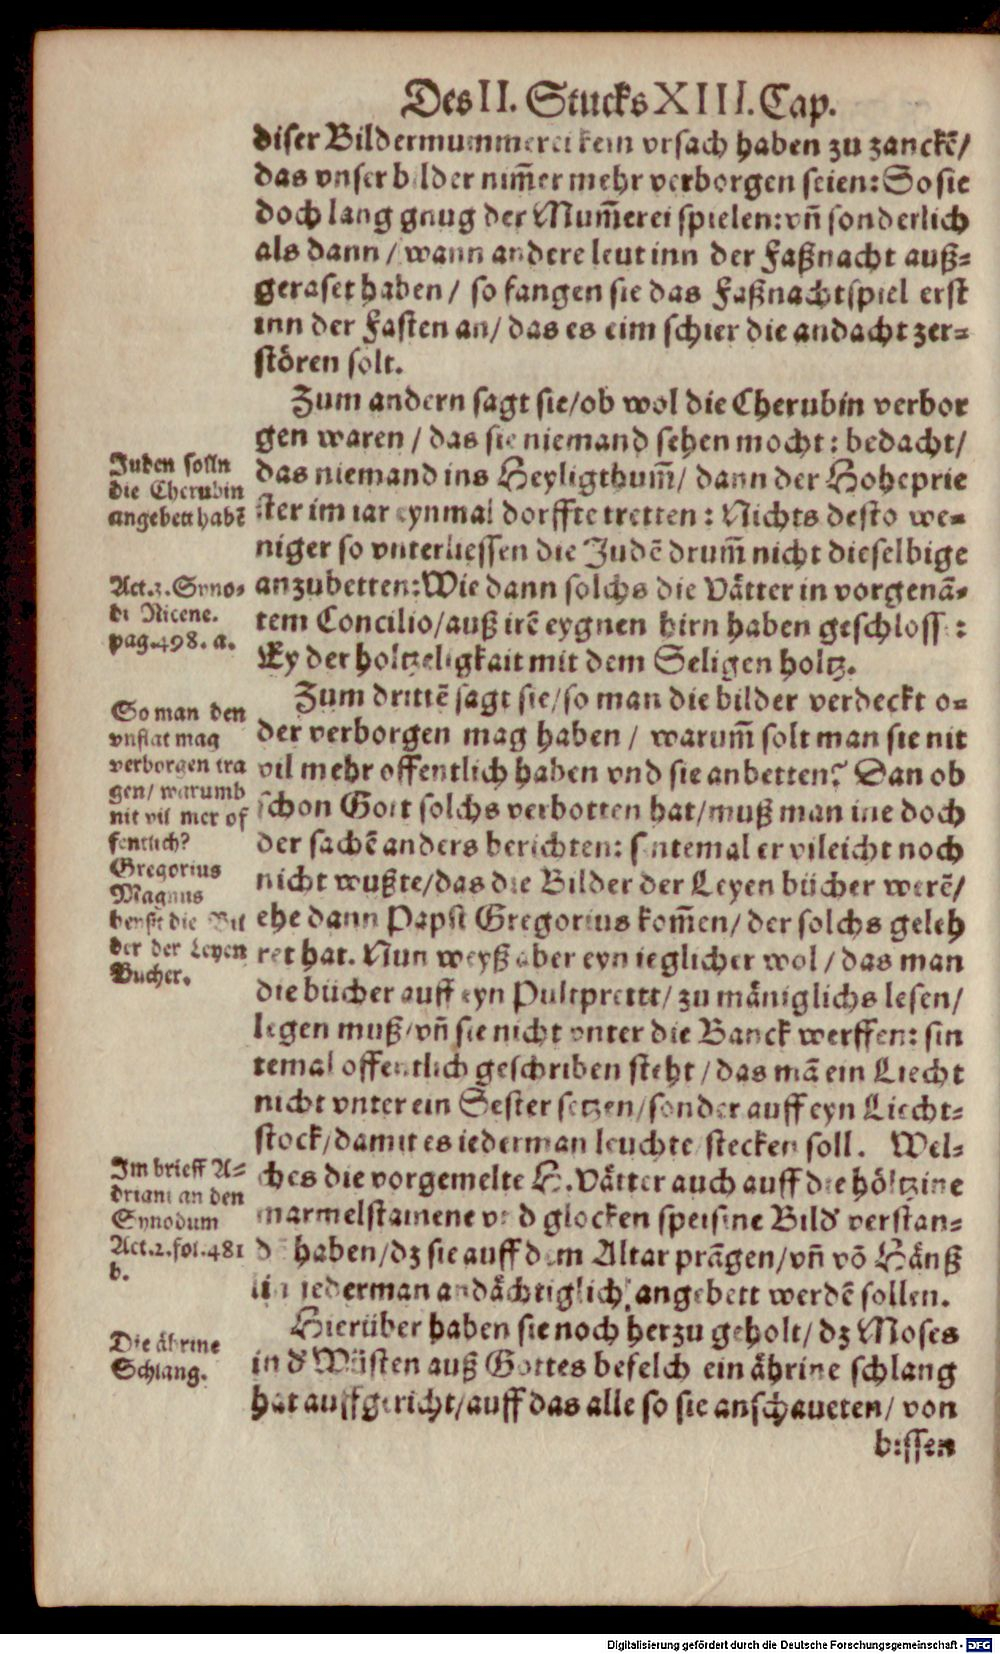 Des II. Stucks XIII. Cap.
diser Bildermummerei kein vrsach haben zu zanckẽ/
das vnser bilder nim̃er mehr verborgen seien: So sie
doch lang gnug der Mum̃erei spielen: vñ sonderlich
als dann / wann andere leut inn der Faßnacht auß-
geraset haben / so fangen sie das Faßnachtspiel erst
inn der Fasten an/ das es eim schier die andacht zer-
stören solt.
Zum andern sagt sie/ob wol die Cherubin verbor
gen waren / das sie niemand sehen mocht: bedacht/
das niemand ins Heyligthum̃/ dann der Hoheprie
ster im iar eynmal dorffte tretten: Nichts desto we-
niger so vnterliessen die Judẽ drum̃ nicht dieselbige
anzubetten: Wie dann solchs die Vätter in vorgenã-
tem Concilio/auß irẽ eygnen hirn haben geschlossẽ:
Ey der holtzeligkait mit dem Seligen holtz.
Juden solln
die Cherubin
angebett habẽ
Act.3. Syno-
di Nicene.
pag.498. a.
Zum drittẽ sagt sie/so man die bilder verdeckt o-
der verborgen mag haben / warum̃ solt man sie nit
vil mehr offentlich haben vnd sie anbetten? Dan ob
schon Gott solchs verbotten hat/muß man ine doch
der sachẽ anders berichten: sintemal er vileicht noch
nicht wußte/das die Bilder der Leyen bücher werẽ/
ehe dann Papst Gregorius kom̃en/ der solchs geleh
ret hat. Nun weyß aber eyn ieglicher wol / das man
die bücher auff eyn Pultprettt/ zu mäniglichs lesen/
legen muß/vñ sie nicht vnter die Banck werffen: sin
temal offentlich geschriben steht / das mã ein Liecht
nicht vnter ein Sester setzen/sonder auff eyn Liecht-
stock/damit es iederman leuchte/stecken soll. Wel-
ches die vorgemelte H. Vätter auch auff die höltzine
marmelstainene vnd glocken speisine Bild' verstan-
dẽ haben/dz sie auff dem Altar prãgen/vñ võ Hänß
lin jederman andächtiglich angebett werdẽ sollen.
So man den
vnflat mag
verborgen tra
gen/ warumb
nit vil mer of
fentlich?
Gregorius
Magnus
heyßt die Bil
der der Leyen
Bücher.
Im brieff A-
driani an den
Synodum
Act.2.fol.481
b.
Hierüber haben sie noch herzu geholt/ dz Moses
in d' Wüsten auß Gottes befelch ein ährine schlang
hat auffgericht/auff das alle so sie anschaueten/ von
Die ährine
Schlang.
bissen
Digitalisierung gefördert durch die Deutsche Forschungsgemeinschaft - DFG